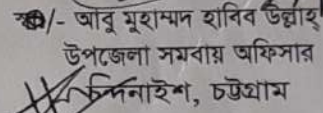 স্বাঃ/- আবু মুহাম্মদ হাবিব উল্লাহ্
উপজেলা সমবায় অফিসার
চন্দনাইশ, চট্টগ্রাম